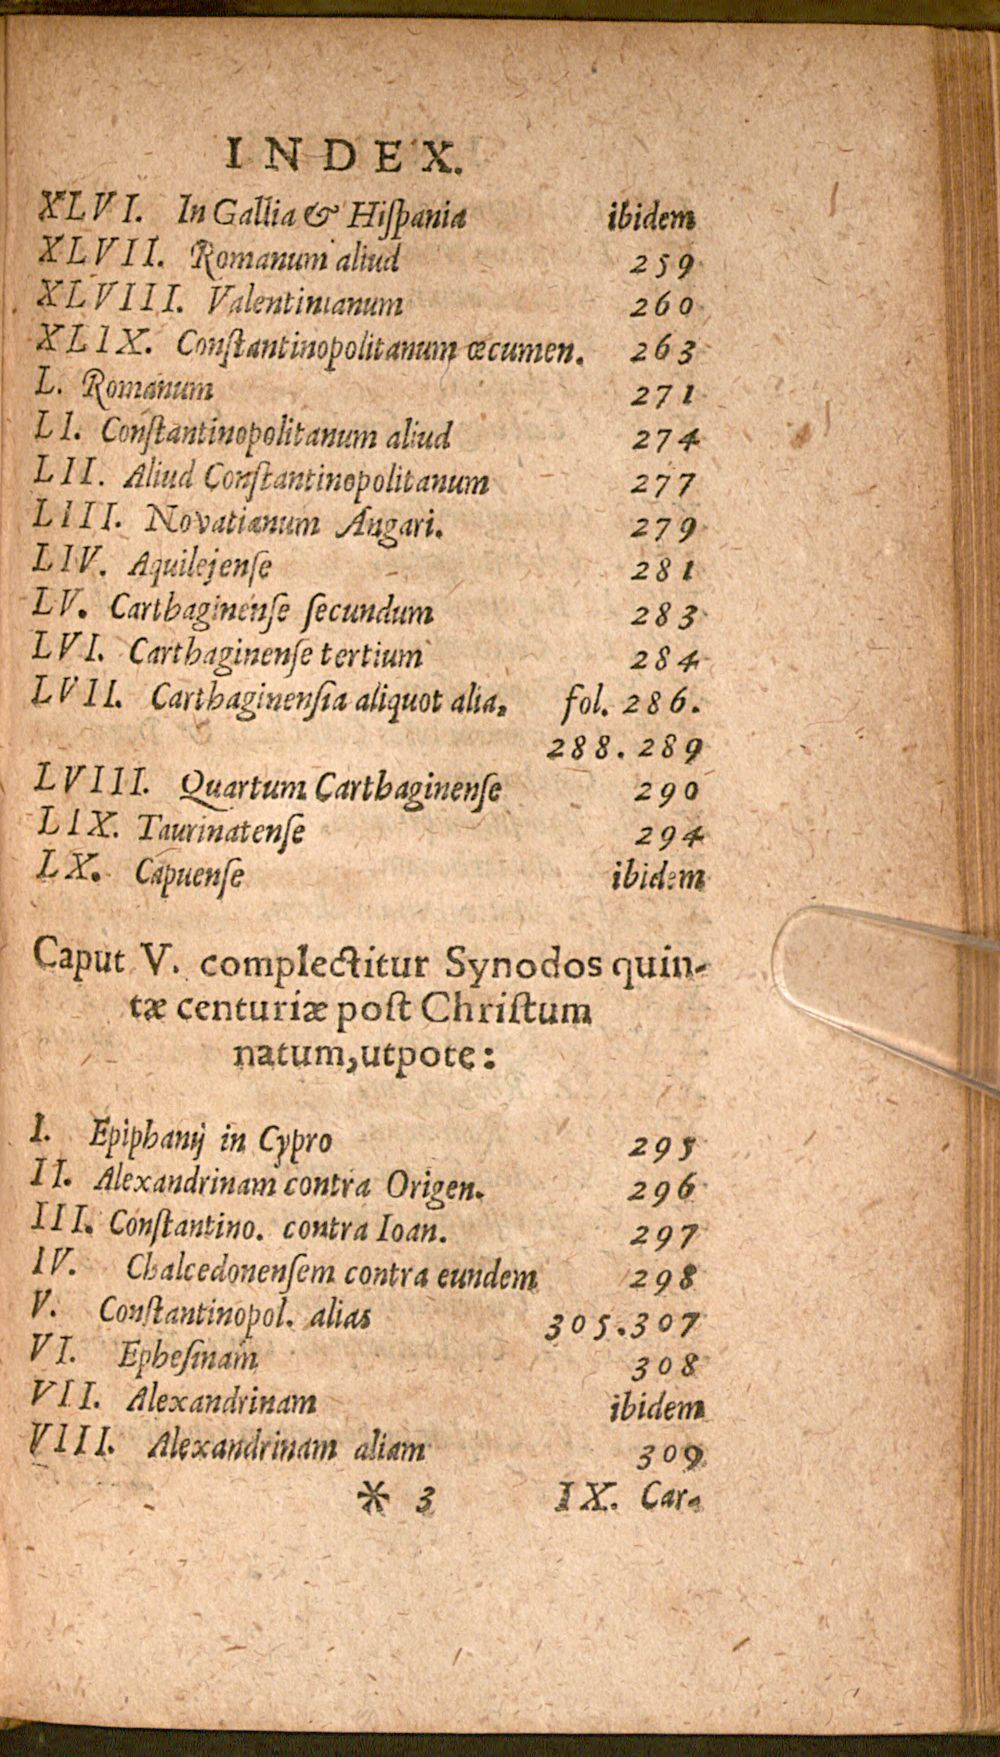 INDEX.
XLVI. In Gallia & Hiſpania ibidem
XLVII. Romanum aliud 259
XLVIII. Valentinianum 260
XLIX. Conſtantinopolitanum œcumen. 263
L. Romanum 271
LI. Conſtantinopolitanum aliud 274
LII. Aliud Conſtantinopolitanum 277
LIII. Novatianum Angari. 279
LIV. Aquilejenſe 281
LV. Carthaginenſe ſecundum 283
LVI. Carthaginenſe tertium 284
LVII. Carthaginenſia aliquot alia, fol. 286.
288. 289
LVIII. Quartum Carthaginenſe 290
LIX. Taurinatenſe 294
LX. Capuenſe ibidem
Caput V. complectitur Synodos quin-
tæ centuriæ poſt Chriſtum
natum, utpote:
I. Epiphanij in Cypro 295
II. Alexandrinam contra Origen. 296
III. Conſtantino. contra Ioan. 297
IV. Chalcedonenſem contra eundem 298
V. Conſtantinopol. alias 305. 307
VI. Epheſinam 308
VII. Alexandrinam ibidem
VIII. Alexandrinam aliam 309
* 3 IX. Car-